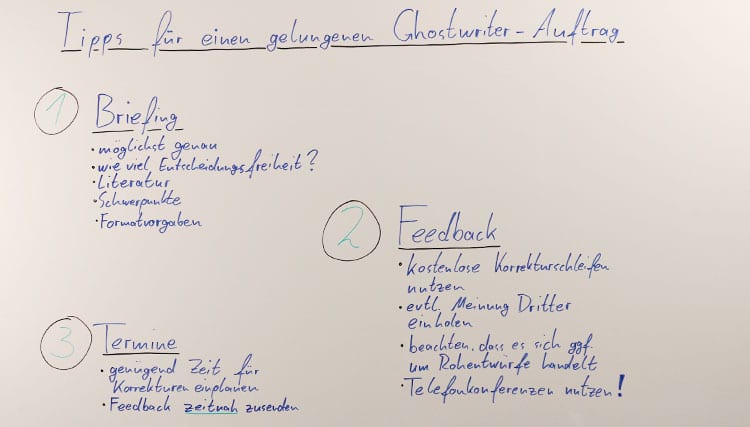 Tipps für einen gelungenen Ghostwriter-Auftrag
1 Briefing
• möglichst genau
• wie viel Entscheidungsfreiheit?
• Literatur
• Schwerpunkte
• Formatvorgaben
2 Feedback
• kostenlose Korrekturschleifen
nutzen
• evtl. Meinung Dritter
einholen
• beachten, dass es sich ggf.
um Rohentwürfe handelt
• Telefonkonferenzen nutzen!
3 Termine
• genügend Zeit für
Korrekturen einplanen
• Feedback zeitnah zusenden